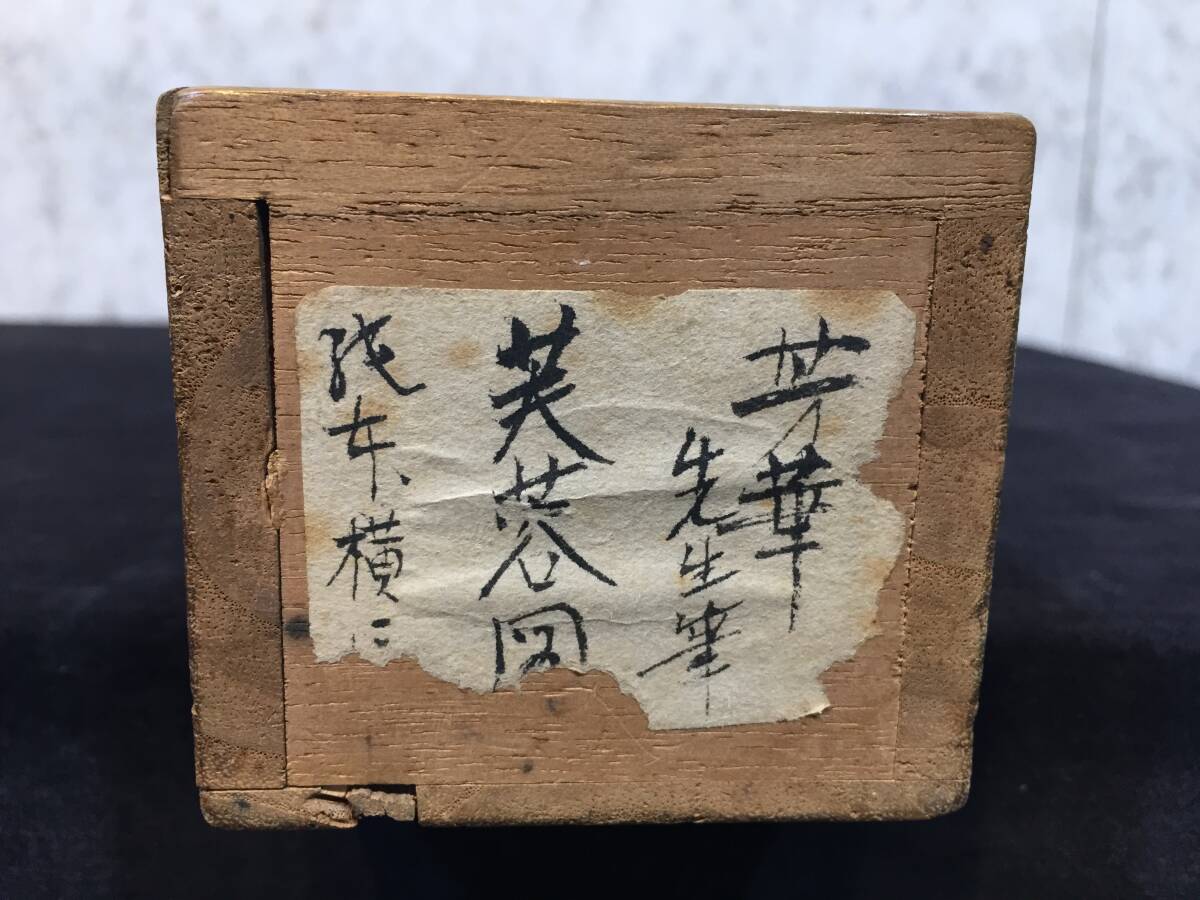 芳華
先生筆
芙蓉図
絖本横に